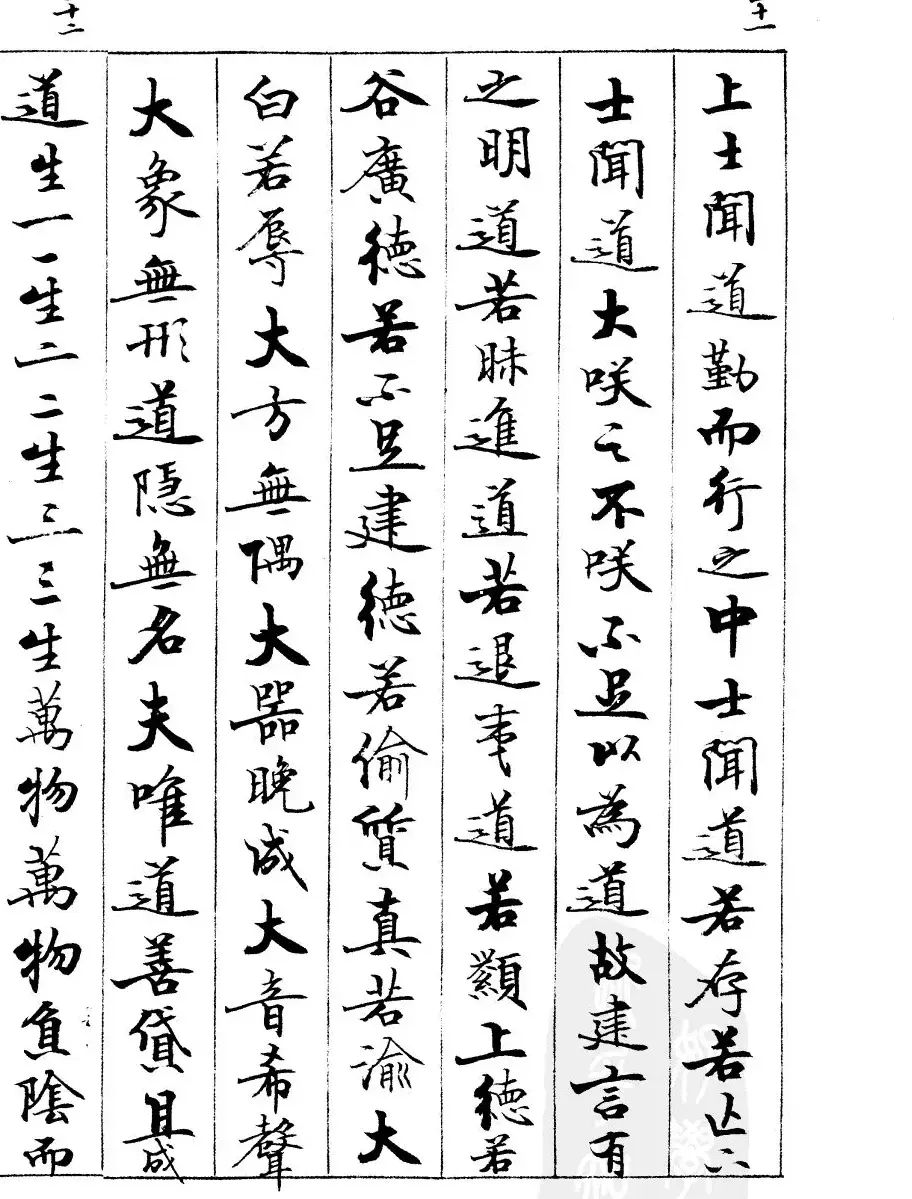 十一
上士聞道勤而行之中士聞道若存若亡下
士聞道大咲之不咲不足以為道故建言有
之明道若昧進道若退夷道若纇上德若
谷廣德若不足建德若偷質真若渝大
白若辱大方無隅大器晚成大音希聲
大象無形道隱無名夫唯道善貸且成
十二
道生一一生二二生三三生萬物萬物負陰而